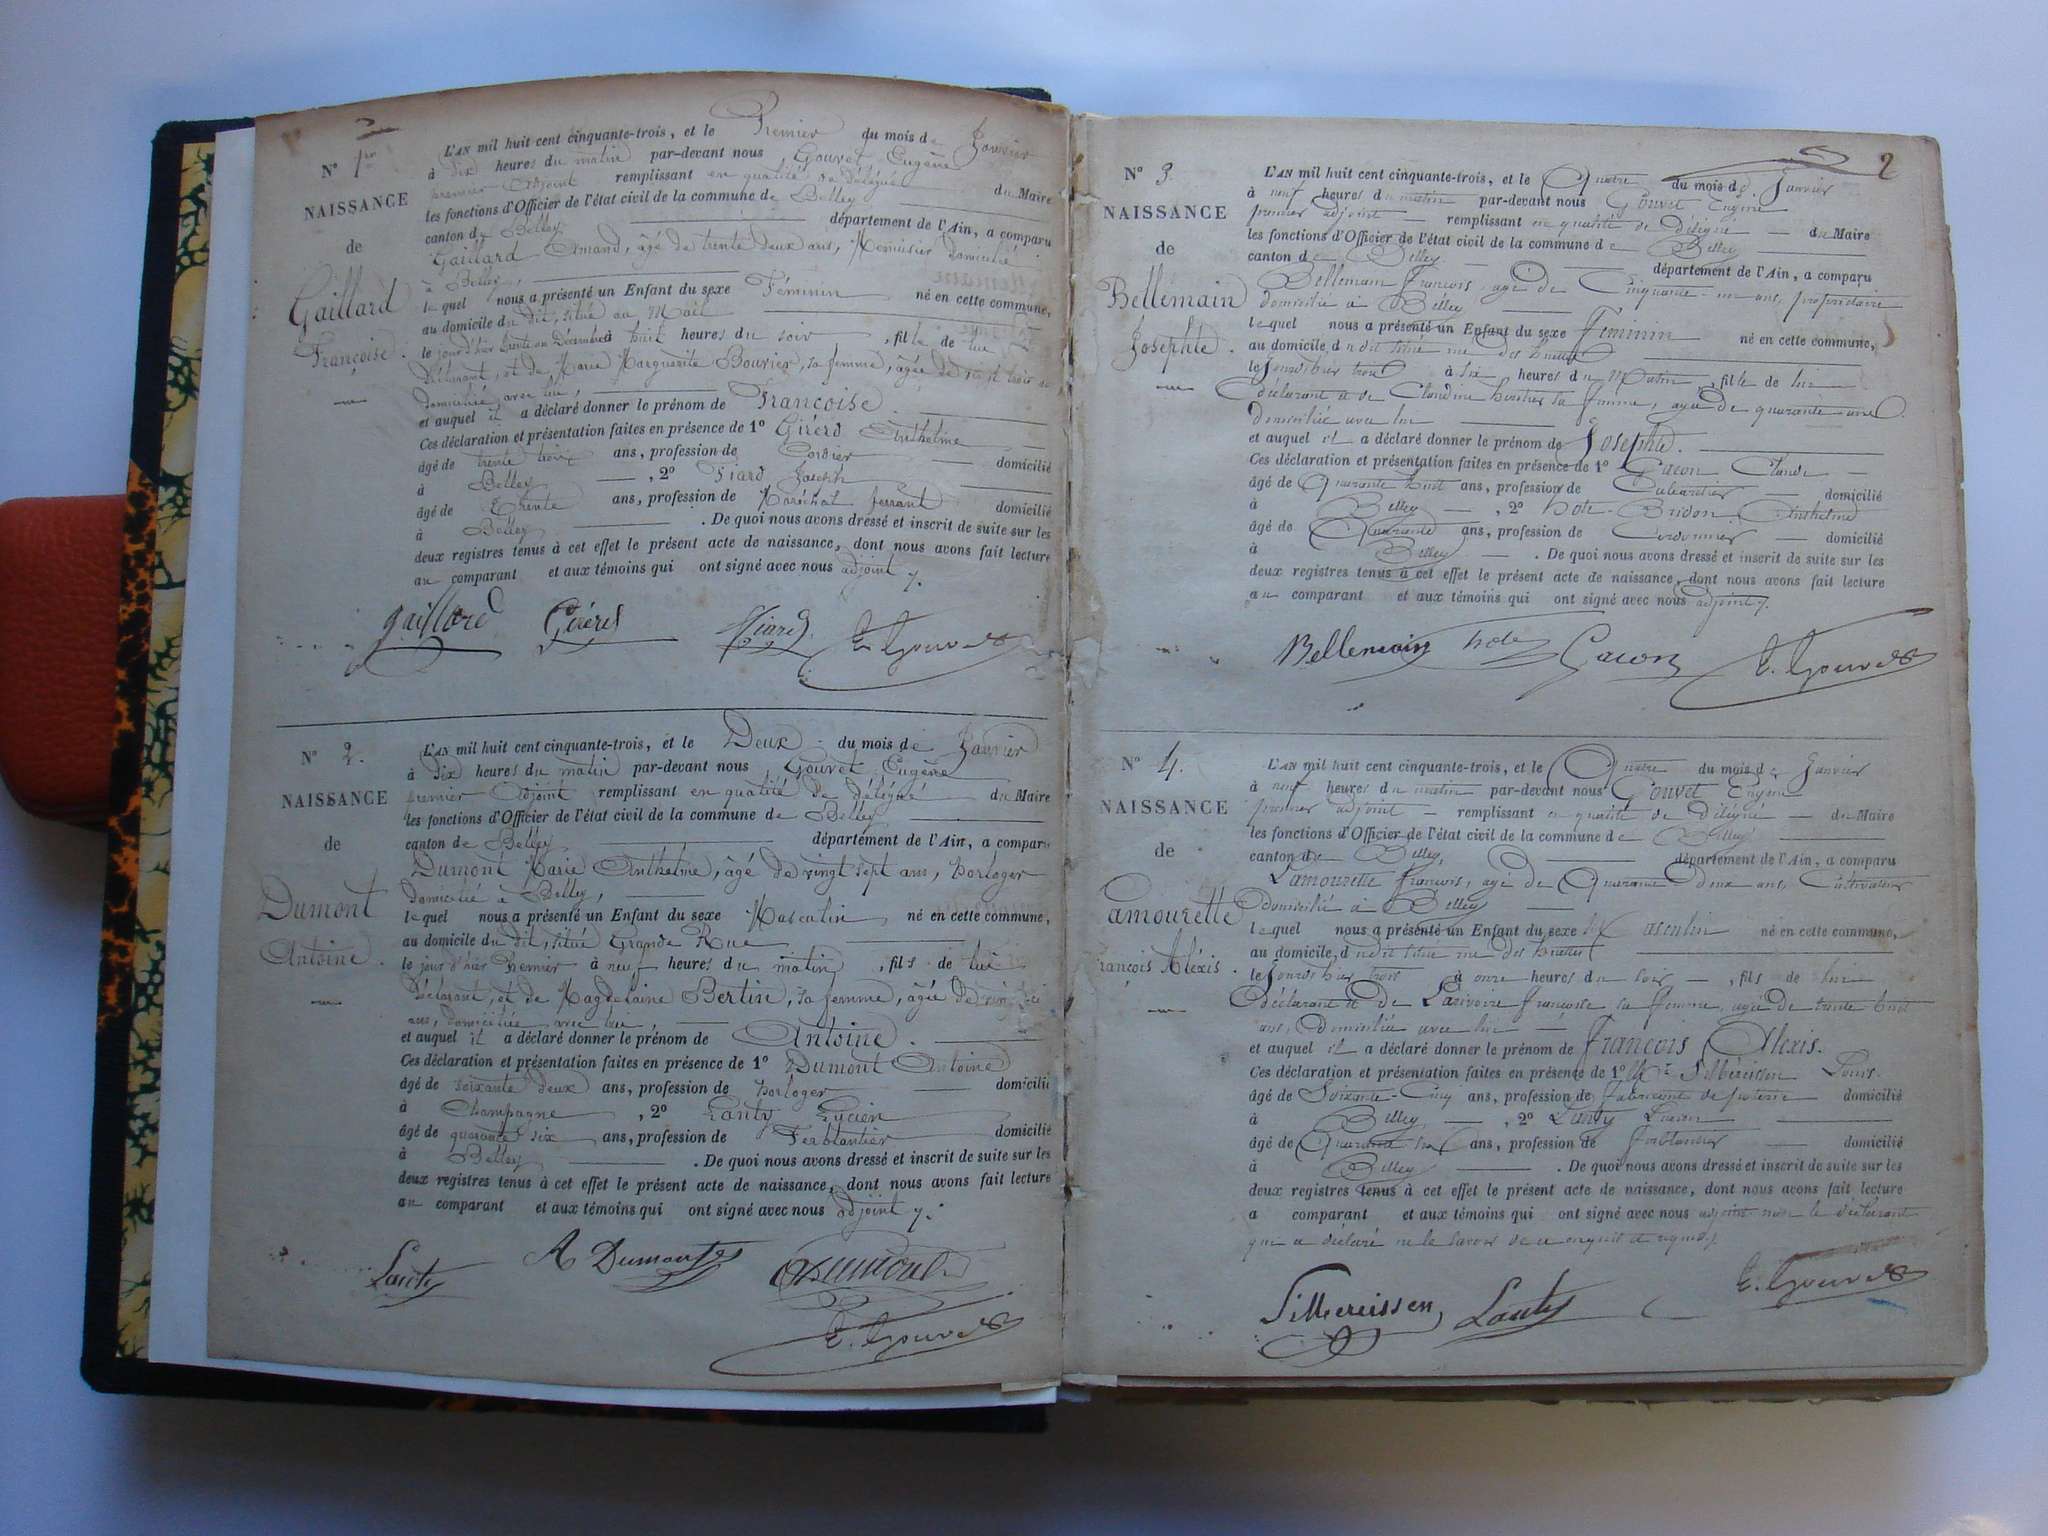 N° 1er
NAISSANCE
de
Gaillard
Françoise.
L'AN mil huit cent cinquante-trois, et le Premier du mois de Janvier
à dix heures du matin par-devant nous Gouvet Eugène
premier Adjoint remplissant en qualité de Délégué du Maire
les fonctions d'Officier de l'état civil de la commune de Belley
canton de Belley département de l'Ain, a comparu
Gaillard Armand, âgé de trente deux ans, Menuisier domicilié
à Belley,
lequel nous a présenté un Enfant du sexe Féminin né en cette commune,
au domicile du dit, situé au Mail
le jour d'hier trente un Décembre à huit heures du soir, fille de lui
Déclarant, et de Marie Marguerite Bouvier, sa femme, âgée de
domiciliée avec lui,
et auquel il a déclaré donner le prénom de Françoise
Ces déclaration et présentation faites en présence de 1° Girerd Anthelme
âgé de trente trois ans, profession de Cordier domicilié
à Belley, 2° Piard Joseph
âgé de Trente ans, profession de Maréchal ferrant domicilié
à Belley. De quoi nous avons dressé et inscrit de suite sur les
deux registres tenus à cet effet le présent acte de naissance, dont nous avons fait lecture
au comparant et aux témoins qui ont signé avec nous adjoint
gaillard Girerd Piard E. Gouvet
N° 2.
NAISSANCE
de
Dumont
Antoine.
L'AN mil huit cent cinquante-trois, et le Deux du mois de Janvier
à dix heures du matin par-devant nous Gouvet Eugène
premier Adjoint remplissant en qualité de Délégué du Maire
les fonctions d'Officier de l'état civil de la commune de Belley
canton de Belley département de l'Ain, a comparu
Dumont Marie Anthelme, âgé de vingt sept ans, horloger
domicilié à Belley,
lequel nous a présenté un Enfant du sexe Masculin né en cette commune,
au domicile du dit, situé Grande Rue
le jour d'hier Premier à neuf heures du matin, fils de lui
Déclarant, et de Magdelaine Bertin, sa femme, âgée de
ans, domiciliée avec lui,
et auquel il a déclaré donner le prénom de Antoine.
Ces déclaration et présentation faites en présence de 1° Dumont Antoine
âgé de soixante deux ans, profession de horloger domicilié
à Champagne, 2° Lanty Lucien
âgé de quarante six ans, profession de Ferblantier domicilié
à Belley. De quoi nous avons dressé et inscrit de suite sur les
deux registres tenus à cet effet le présent acte de naissance, dont nous avons fait lecture
au comparant et aux témoins qui ont signé avec nous adjoint
Lanty A Dumont Dumont
E. Gouvet
2
N° 3.
NAISSANCE
de
Bellemain
Josephte.
L'AN mil huit cent cinquante-trois, et le Quatre du mois de Janvier
à neuf heures du matin par-devant nous Gouvet Eugène
premier adjoint remplissant en qualité de Délégué du Maire
les fonctions d'Officier de l'état civil de la commune de Belley
canton de Belley département de l'Ain, a comparu
Bellemain François, agé de Cinquante-un ans, propriétaire
domicilié à Belley
lequel nous a présenté un Enfant du sexe Féminin né en cette commune,
au domicile du dit situé rue des
le jourd'hier trois à six heures du Matin, fille de lui
déclarant et de Claudine sa femme, agée de quarante-
domiciliée avec lui
et auquel il a déclaré donner le prénom de Josephte.
Ces déclaration et présentation faites en présence de 1° Gacon Claude
âgé de Quarante huit ans, profession de Cabaretier domicilié
à Belley, 2° hote-Bridon Anthelme
âgé de Quarante ans, profession de Cordonnier domicilié
à Belley. De quoi nous avons dressé et inscrit de suite sur les
deux registres tenus à cet effet le présent acte de naissance, dont nous avons fait lecture
au comparant et aux témoins qui ont signé avec nous adjoint
Bellemain hote Gacon E. Gouvet
N° 4.
NAISSANCE
de
amourette
rançois Aléxis.
L'AN mil huit cent cinquante-trois, et le Quatre du mois de Janvier
à neuf heures du matin par-devant nous Gouvet Eugène
premier adjoint remplissant en qualité de Délégué du Maire
les fonctions d'Officier de l'état civil de la commune de Belley
canton de Belley, département de l'Ain, a comparu
Lamourette François, agé de Quarante Deux ans, Cultivateur
domicilié à Belley
lequel nous a présenté un Enfant du sexe Masculin né en cette commune,
au domicile du dit situé rue des
le jourd'hier trois à onze heures du soir, fils de lui
déclarant et de Larivoire Françoise sa femme, agée de trente huit
ans, domiciliée avec lui
et auquel il a déclaré donner le prénom de François Alexis.
Ces déclaration et présentation faites en présence de 1° Mr Simereissen Louis
âgé de Soixante-Cinq ans, profession de fabricant de poterie domicilié
à Belley, 2° Lanty Lucien
âgé de Quarante six ans, profession de ferblantier domicilié
à Belley. De quoi nous avons dressé et inscrit de suite sur les
deux registres tenus à cet effet le présent acte de naissance, dont nous avons fait lecture
a comparant et aux témoins qui ont signé avec nous adjoint non le déclarant
qui a déclaré ne le savoir de ce enquis et requis
Simereissen Lanty E. Gouvet